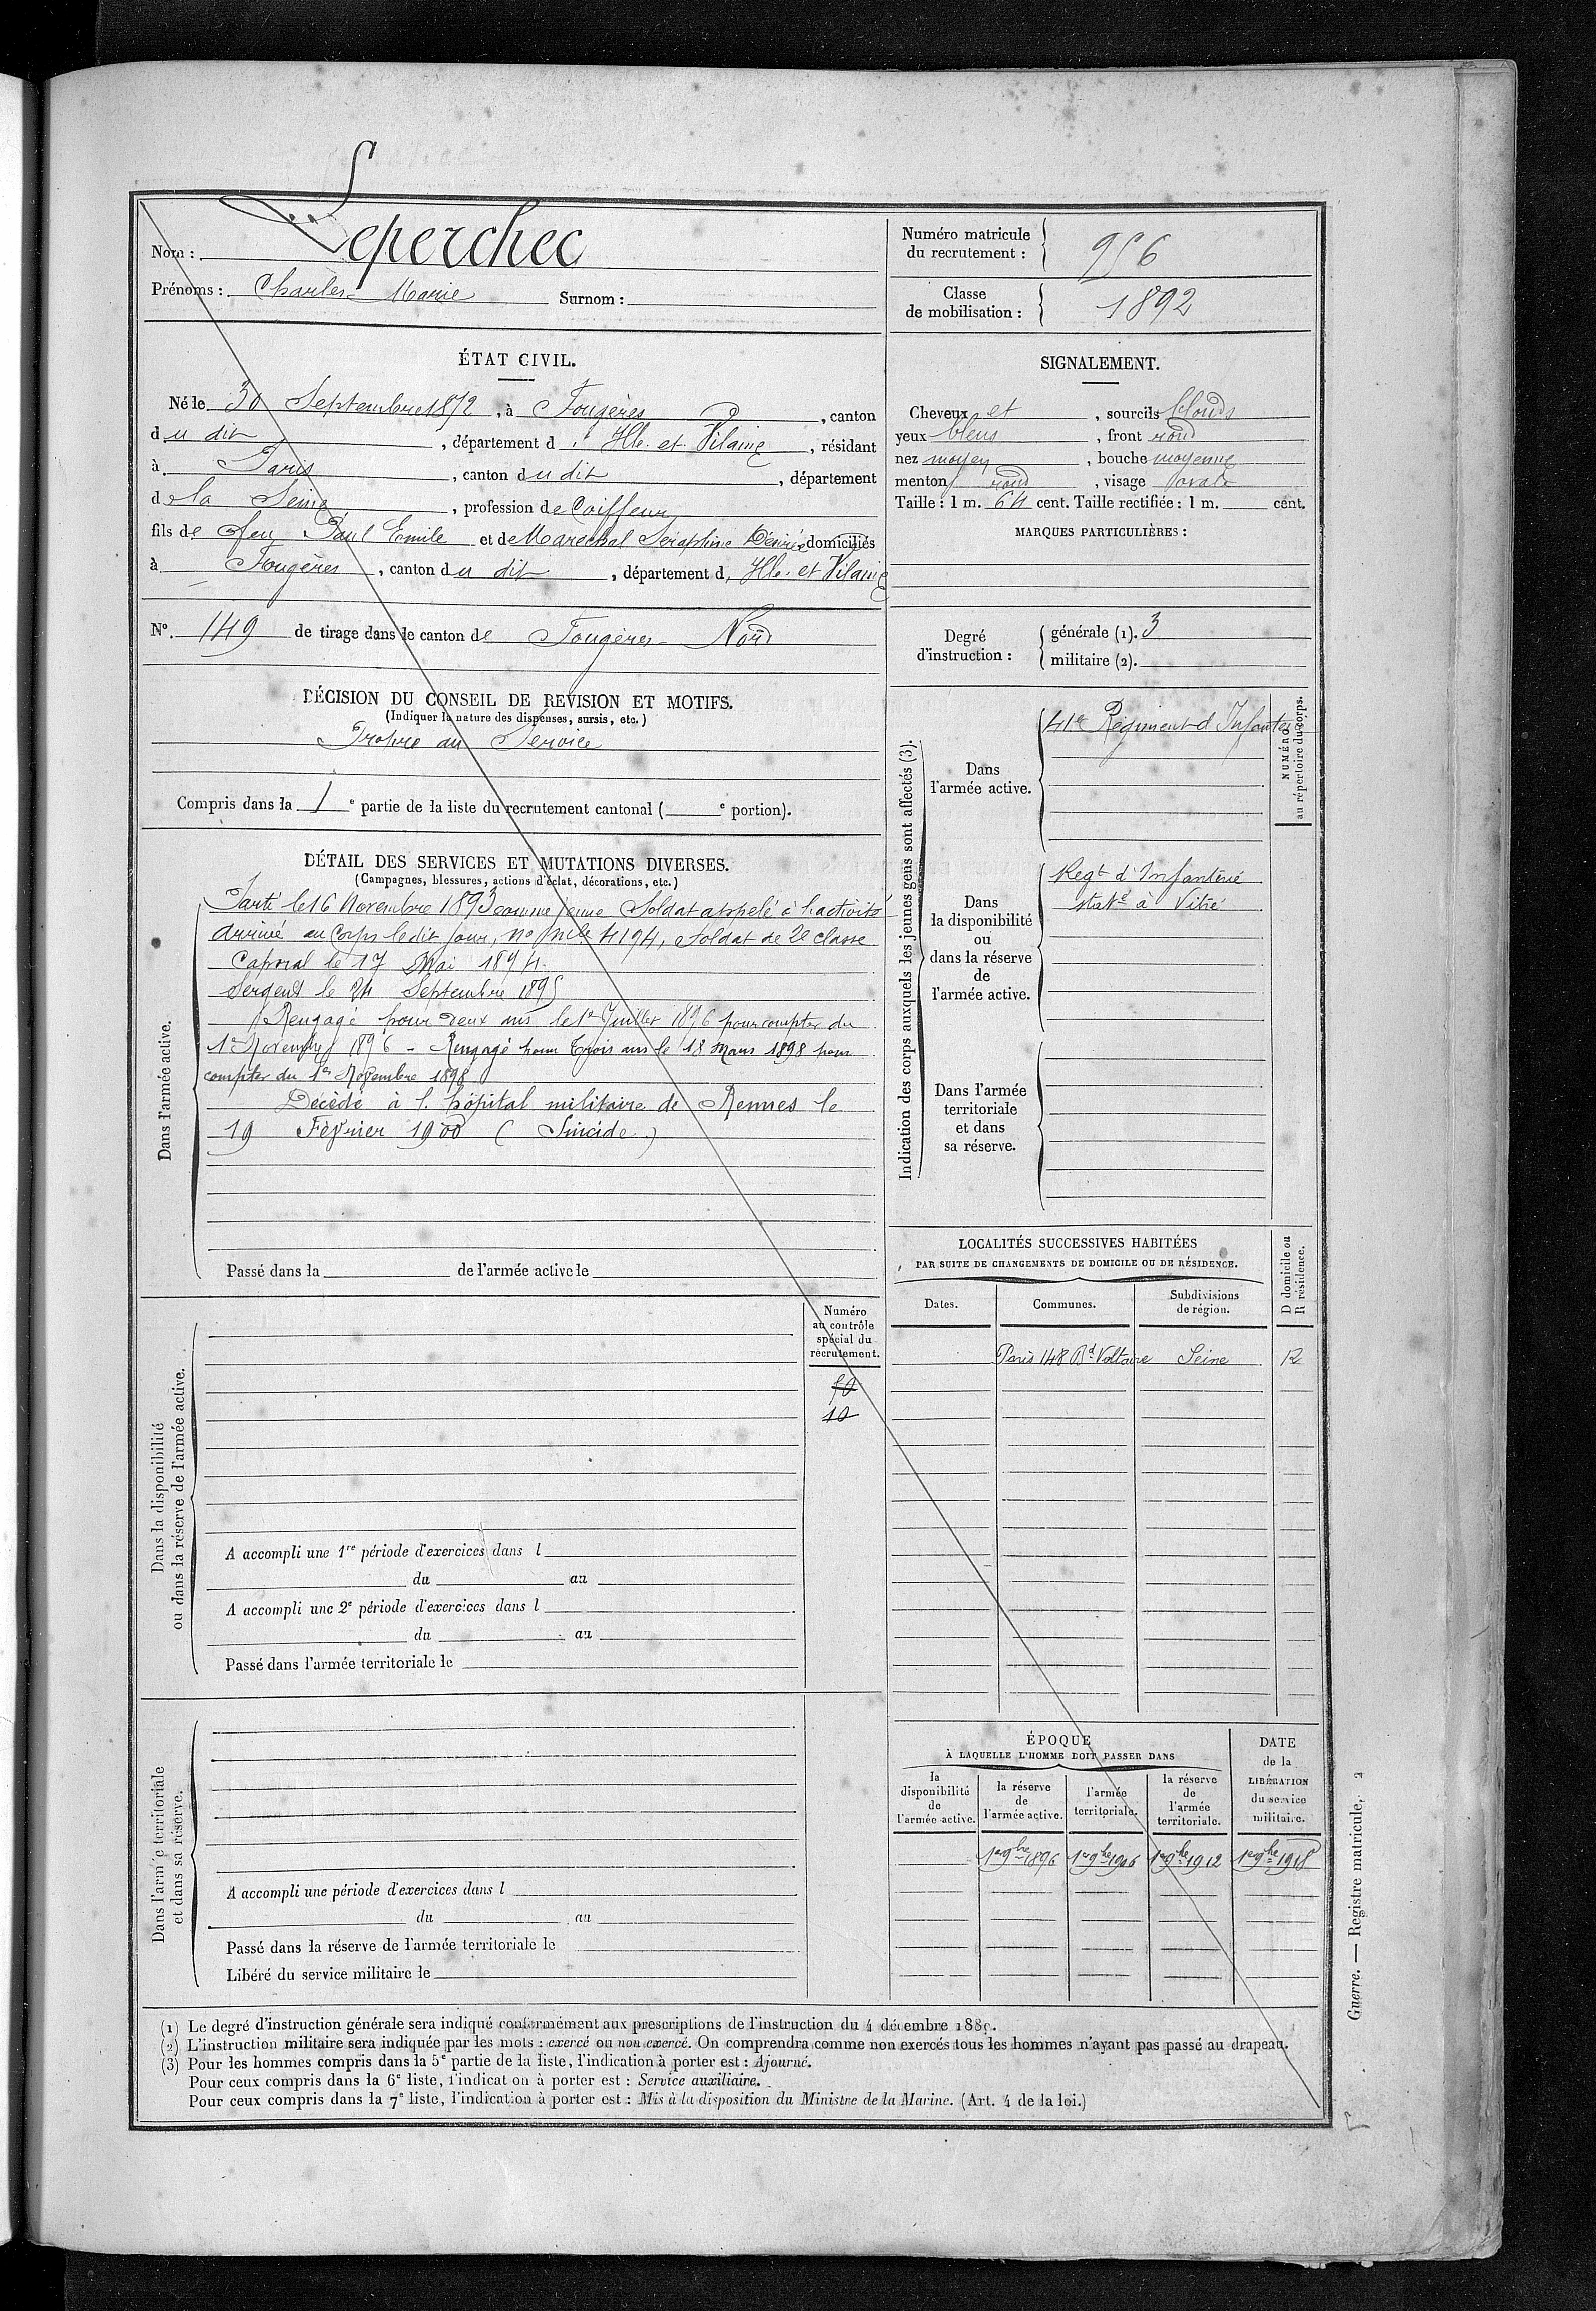 Nom : Leperchec
Prénoms : Charles Marie Surnom :
Numéro matricule du recrutement : 956
Classe de mobilisation : 1892
ÉTAT CIVIL.
Né le 30 Septembre 1872, à Fougères, canton
du dit, département d'Ille et Vilaine, résidant
à Paris, canton du dit, département
de la Seine, profession de Coiffeur
fils de feu Paul Emile et de Maréchal Séraphine Désirée domiciliés
à Fougères, canton du dit, département d, Ille et Vilaine
N° 149 de tirage dans le canton de Fougères Nord
DÉCISION DU CONSEIL DE REVISION ET MOTIFS.
(Indiquer la nature des dispenses, sursis, etc.)
Propre au Service
Compris dans la 1e partie de la liste du recrutement cantonal ( e portion).
DÉTAIL DES SERVICES ET MUTATIONS DIVERSES.
(Campagnes, blessures, actions d'éclat, décorations, etc.)
Dans l'armée active.
Parti le 16 Novembre 1893 comme jeune Soldat appelé à l'activité
Arrivé au Corps le dit jour, no mle 4194, Soldat de 2e classe
Caporal le 17 Mai 1894.
Sergent le 24 Septembre 1895
Rengagé pour deux ans le 1er Juillet 1896 pour compter du
1er Novembre 1896 - Rengagé pour trois ans le 18 Mars 1898 pour
compter du 1er Novembre 1898
Décédé à l'hôpital militaire de Rennes le
19 Février 1900 ( Suicide )
Passé dans la de l'armée active le
Dans la disponibilité
ou dans la réserve de l'armée active.
Numéro
au contrôle
spécial du
recrutement.
10
A accompli une 1re période d'exercices dans l
du au
A accompli une 2e période d'exercices dans l
du au
Passé dans l'armée territoriale le
Dans l'armée territoriale
et dans sa réserve.
A accompli une période d'exercices dans l
du au
Passé dans la réserve de l'armée territoriale le
Libéré du service militaire le
SIGNALEMENT.
Cheveux et, sourcils blonds
yeux bleus, front rond
nez moyen, bouche moyenne
menton rond, visage ovale
Taille : 1 m. 64 cent. Taille rectifiée : 1 m. cent.
MARQUES PARTICULIÈRES :
Degré
d'instruction :
générale (1). 3
militaire (2).
Indication des corps auxquels les jeunes gens sont affectés (3).
NUMÉRO
au répertoire du corps.
Dans
l'armée active.
41e Régiment d'Infanterie
Dans
la disponibilité
ou
dans la réserve
de
l'armée active.
Regt d'Infanterie
staté à Vitré
Dans l'armée
territoriale
et dans
sa réserve.
LOCALITÉS SUCCESSIVES HABITÉES
PAR SUITE DE CHANGEMENTS DE DOMICILE OU DE RÉSIDENCE.
D domicile ou
R résidence.
Dates. Communes. Subdivisions de région.
Paris 148 Bd Voltaire Seine R
ÉPOQUE
À LAQUELLE L'HOMME DOIT PASSER DANS
DATE
de la
LIBÉRATION
du service
militaire.
la
disponibilité
de
l'armée active.
la réserve
de
l'armée active.
l'armée
territoriale.
la réserve
de
l'armée
territoriale.
1er 9bre 1896 1er 9bre 1906 1er 9bre 1912 1er 9bre 1918
(1) Le degré d'instruction générale sera indiqué conformément aux prescriptions de l'instruction du 4 décembre 1889.
(2) L'instruction militaire sera indiquée par les mots : exercé ou non exercé. On comprendra comme non exercés tous les hommes n'ayant pas passé au drapeau.
(3) Pour les hommes compris dans la 5e partie de la liste, l'indication à porter est : Ajourné.
Pour ceux compris dans la 6e liste, l'indication à porter est : Service auxiliaire.
Pour ceux compris dans la 7e liste, l'indication à porter est : Mis à la disposition du Ministre de la Marine. (Art. 4 de la loi.)
Guerre. — Registre matricule. 2